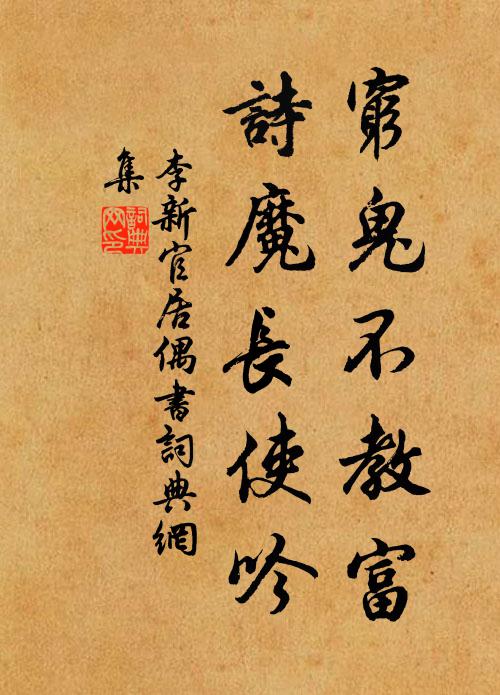 窮鬼不教富
詩魔長使吟
李新官居偶書詞典網
集
詞典
网印